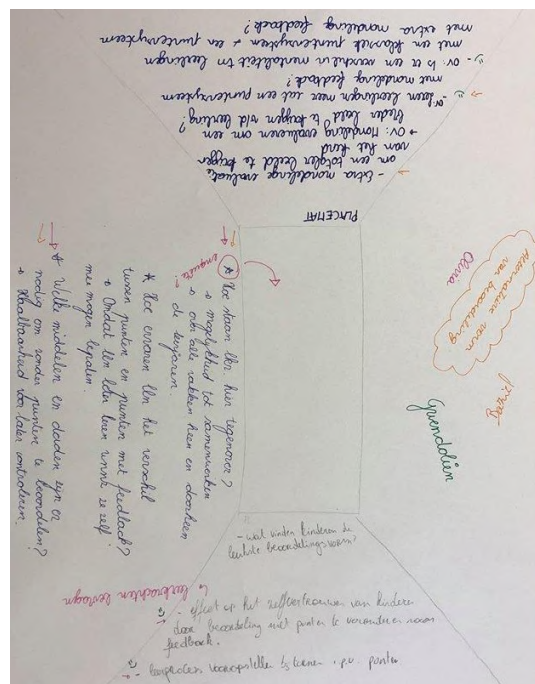 PLACEMAT
- Extra mondelinge evaluatie
om een totaler beeld te krijgen
van het kind
→ OV: Mondeling evalueren om een
breder beeld te krijgen v/d leerling?
- OV: Leren leerlingen meer uit een puntensysteem
met mondeling feedback?
- OV: Is er een verschil in mentaliteit tn leerlingen
met een klassiek puntensysteem & een puntensysteem
met extra mondeling feedback?
* Hoe staan lkr. hier tegenover?
enquête!
→ mogelijkheid tot samenwerken
→ over alle vakken heen en doorheen
de leerjaren.
* Hoe ervaren lln het verschil
tussen punten en punten met feedback?
→ Omdat lln later leren vanuit ze zelf
mee mogen bepalen.
* Welke middelen en doelen zijn er
nodig om zonder punten te beoordelen?
→ Haalbaarheid
later controleren.
Alternatieve
van beoordeling
Gwendolien
- wat vinden kinderen de
leukste beoordelingsvorm?
↳ leerkrachten bevragen
- effect op het zelfvertrouwen van kinderen
door beoordeling met punten te veranderen naar
feedback.
- leerproces vooropstellen
i.p.v. punten